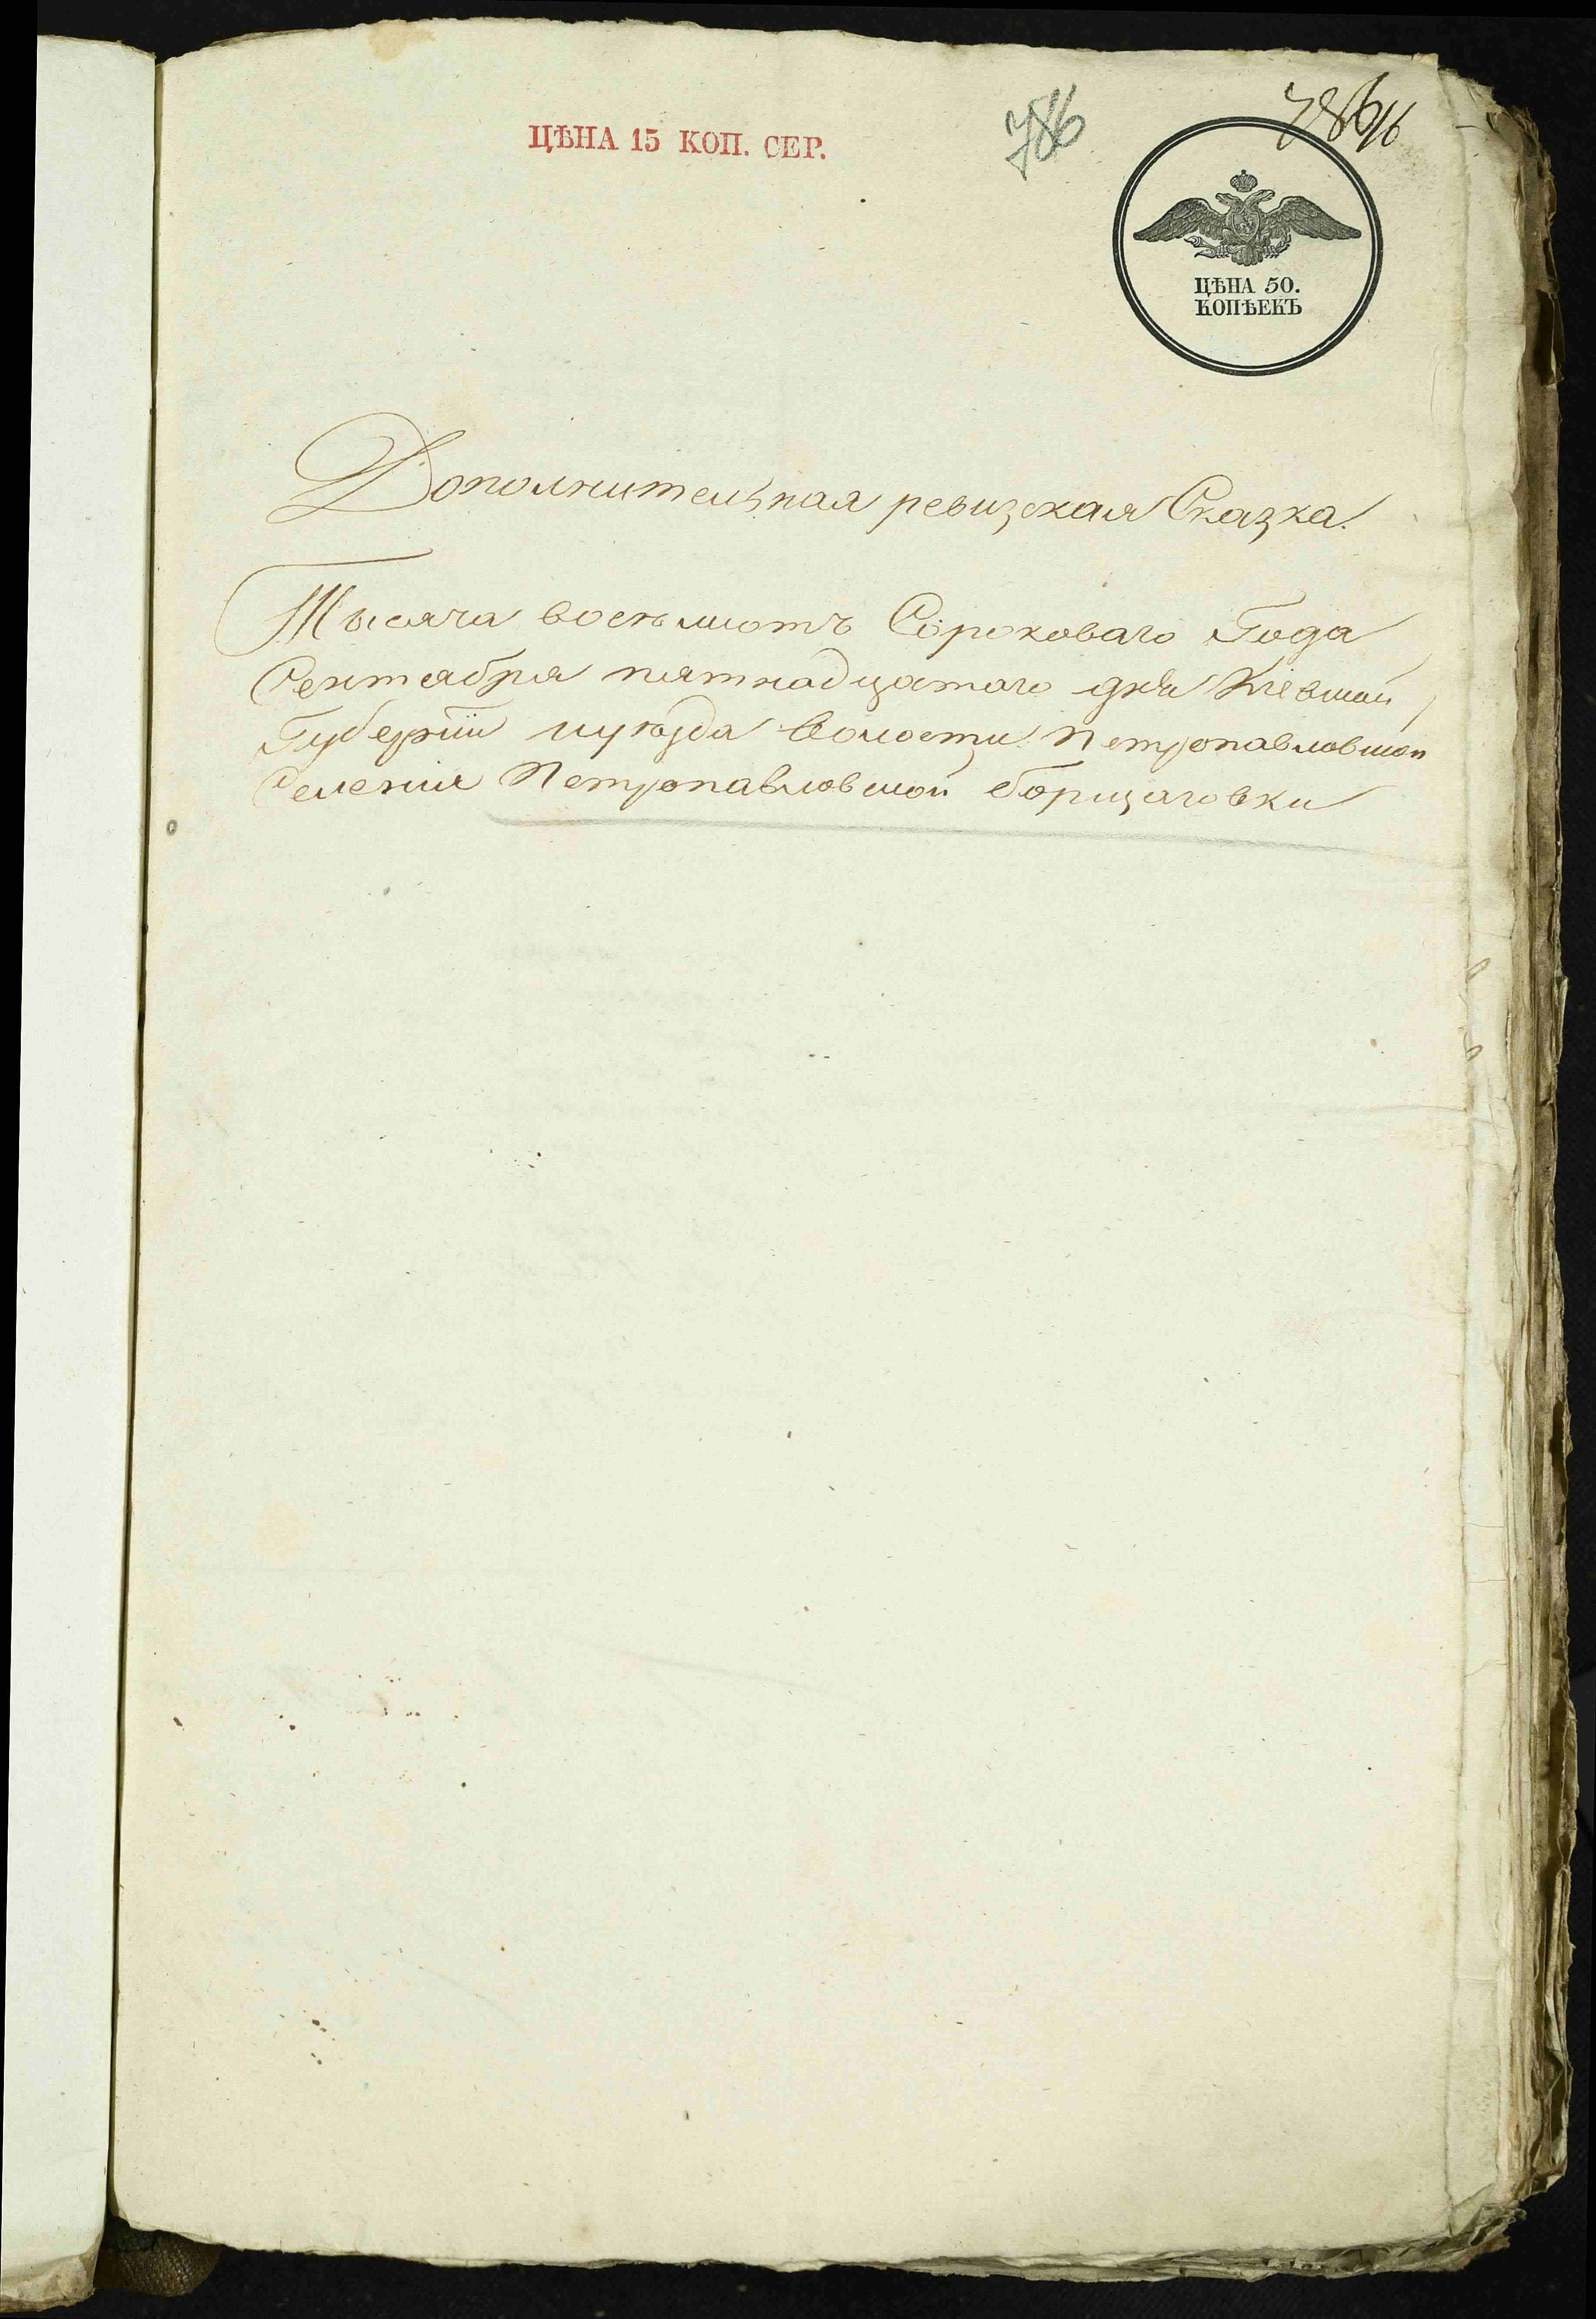 ЦѢНА 15 КОП. СЕР.
786
ЦѢНА 50.
КОПѢЕКЪ
Дополнительная ревизская Сказка.
Тысяча восемьсотъ Сороковаго Года
Сентября пятнадцатаго дня Кіевской
Губерніи и уѣзда Волости Петропавловской
Селенія Петропавловской борщаговки